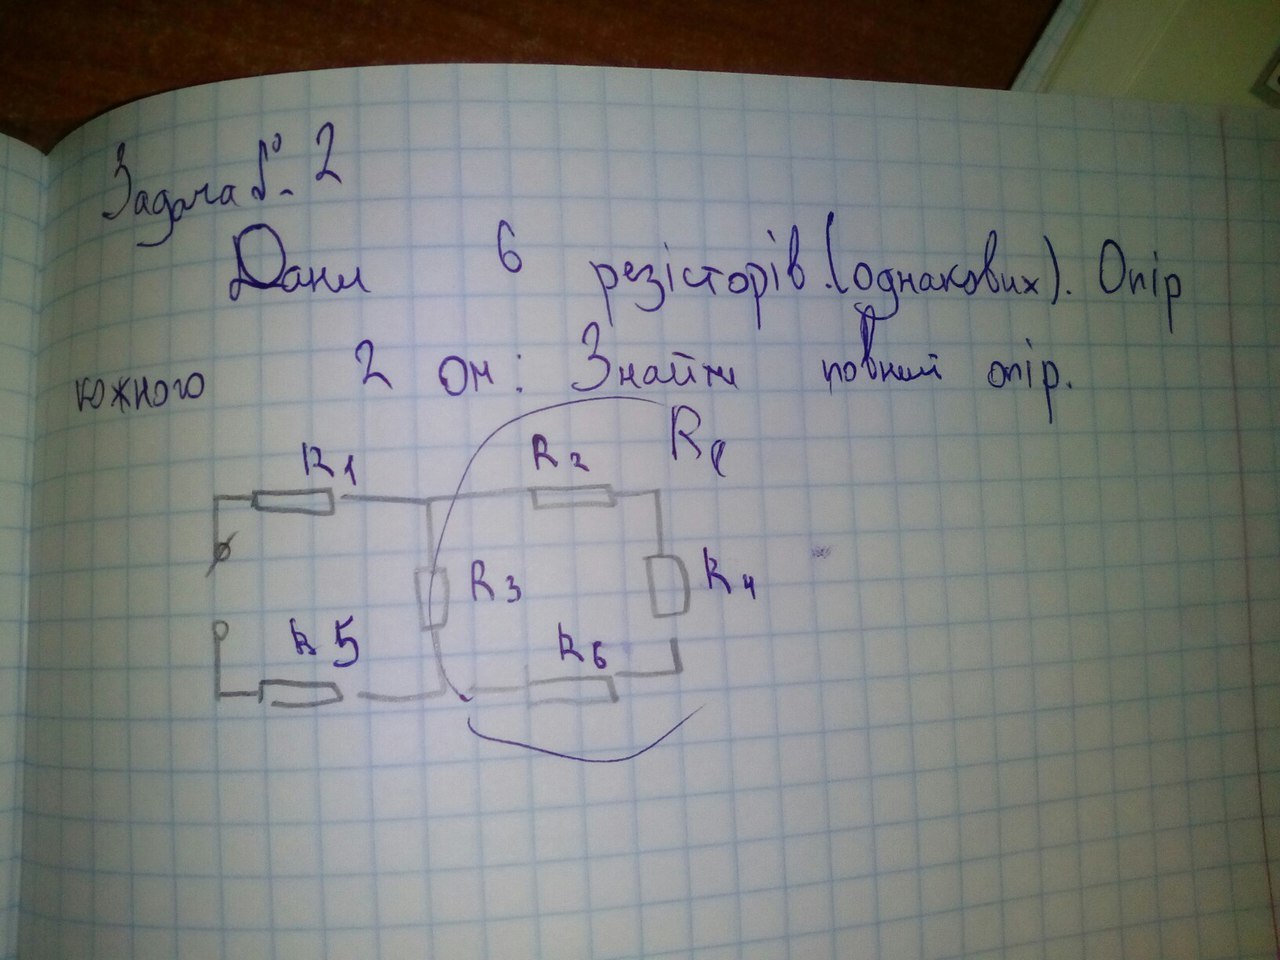 Задача №2
Дани 6 резісторів (однакових). Опір
кожного 2 Ом: Знайти повний опір.
R1 R2 Rе
R3 R4
R5 R6